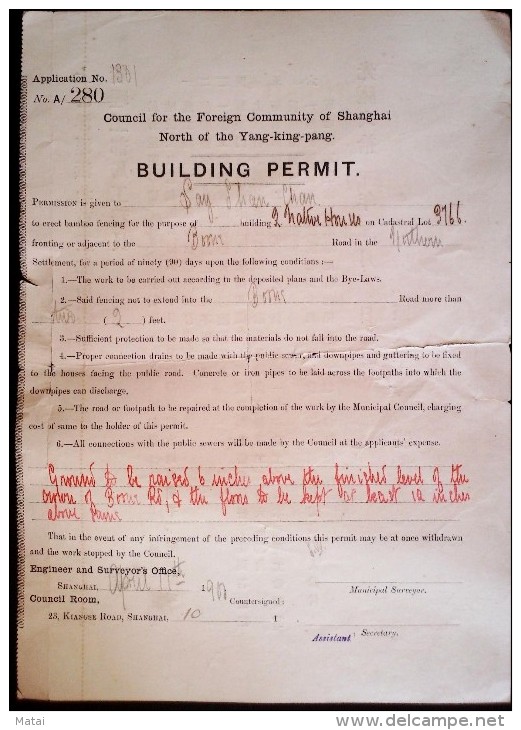 Application No. 1301
No. A/ 280
Council for the Foreign Community of Shanghai
North of the Yang-king-pang.
BUILDING PERMIT.
PERMISSION is given to
to erect bamboo fencing for the purpose of building 2 Native Houses on Cadastral Lot 3766.
fronting or adjacent to the Boone Road in the Northern
Settlement, for a period of ninety (90) days upon the following conditions :—
1.—The work to be carried out according to the deposited plans and the Bye-Laws.
2.—Said fencing not to extend into the Boone Road more than
two (2) feet.
3.—Sufficient protection to be made so that the materials do not fall into the road.
4.—Proper connection drains to be made with the public sewer, and downpipes and guttering to be fixed
to the houses facing the public road. Concrete or iron pipes to be laid across the footpaths into which the
downpipes can discharge.
5.—The road or footpath to be repaired at the completion of the work by the Municipal Council, charging
cost of same to the holder of this permit.
6.—All connections with the public sewers will be made by the Council at the applicants' expense.
Ground to be raised 6 inches above the finished level of the
crown of Boone Rd, & the floors to be kept at least 12 inches
above same
That in the event of any infringement of the preceding conditions this permit may be at once withdrawn
and the work stopped by the Council.
Engineer and Surveyor's Office,
SHANGHAI, April 11th 190
Municipal Surveyor.
Council Room, Countersigned:
23, KIANGSE ROAD, SHANGHAI, 10
Assistant Secretary.
Matai
www.delcampe.net